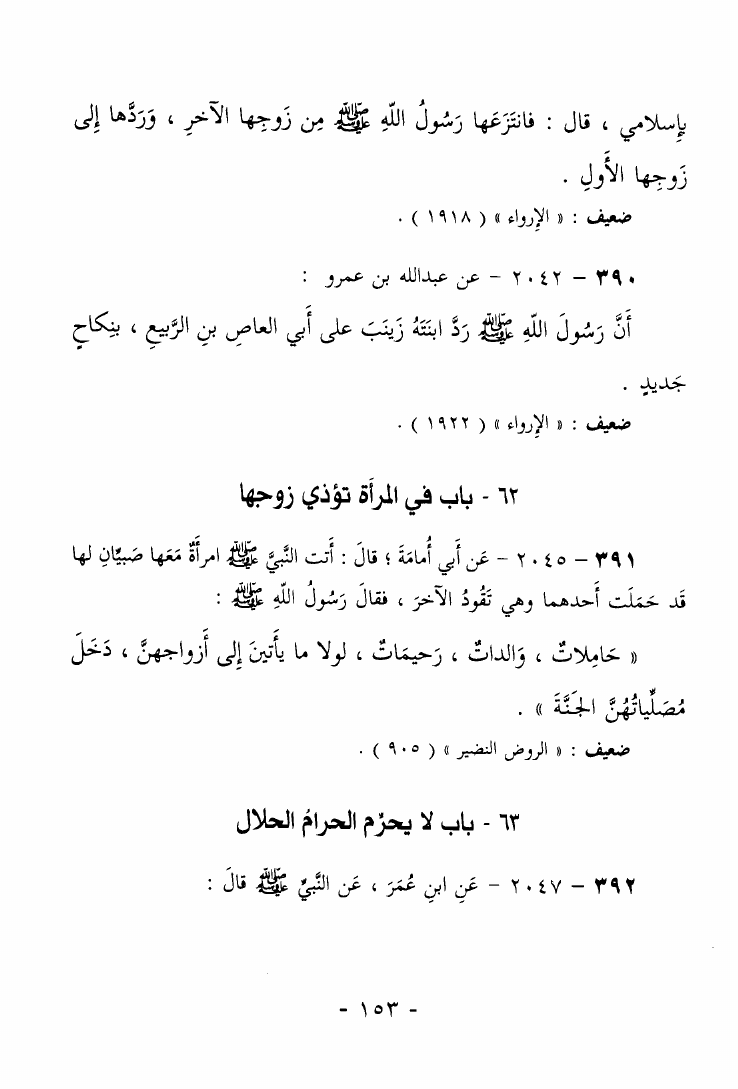 بِإِسلامي ، قال : فانتَزَعَها رَسُولُ اللّهِ ﷺ مِن زَوجِها الآخرِ ، وَرَدَّها إلى
زَوجِها الأَولِ .
ضعيف : « الإرواء » ( ١٩١٨ ) .
٣٩٠ – ٢٠٤٢ – عن عبدالله بن عمرو :
أَنَّ رَسُولَ اللّهِ ﷺ رَدَّ ابنَتَهُ زَينَبَ على أَبي العاصِ بنِ الرَّبيعِ ، بنِكاحٍ
جَديدٍ .
ضعيف : « الإرواء » ( ١٩٢٢ ) .
٦٢ - باب في المرأة تؤذي زوجها
٣٩١ – ٢٠٤٥ – عَن أَبي أُمامَةَ ؛ قالَ : أَتت النَّبيَّ ﷺ امرأَةٌ مَعَها صَبيَّانِ لها
قَد حَمَلَت أَحدهما وهي تَقُودُ الآخرَ ، فقالَ رَسُولُ اللّهِ ﷺ :
« حَامِلاتٌ ، وَالداتٌ ، رَحيمَاتٌ ، لولا ما يأَتينَ إِلى أَزواجهنَّ ، دَخَلَ
مُصَلِّياتُهُنَّ الجَنَّةَ » .
ضعيف : « الروض النضير » ( ٩٠٥ ) .
٦٣ - باب لا يحرِّم الحرامُ الحلال
٣٩٢ – ٢٠٤٧ – عَنِ ابنِ عُمَرَ ، عَن النَّبيِّ ﷺ قالَ :
- ١٥٣ -